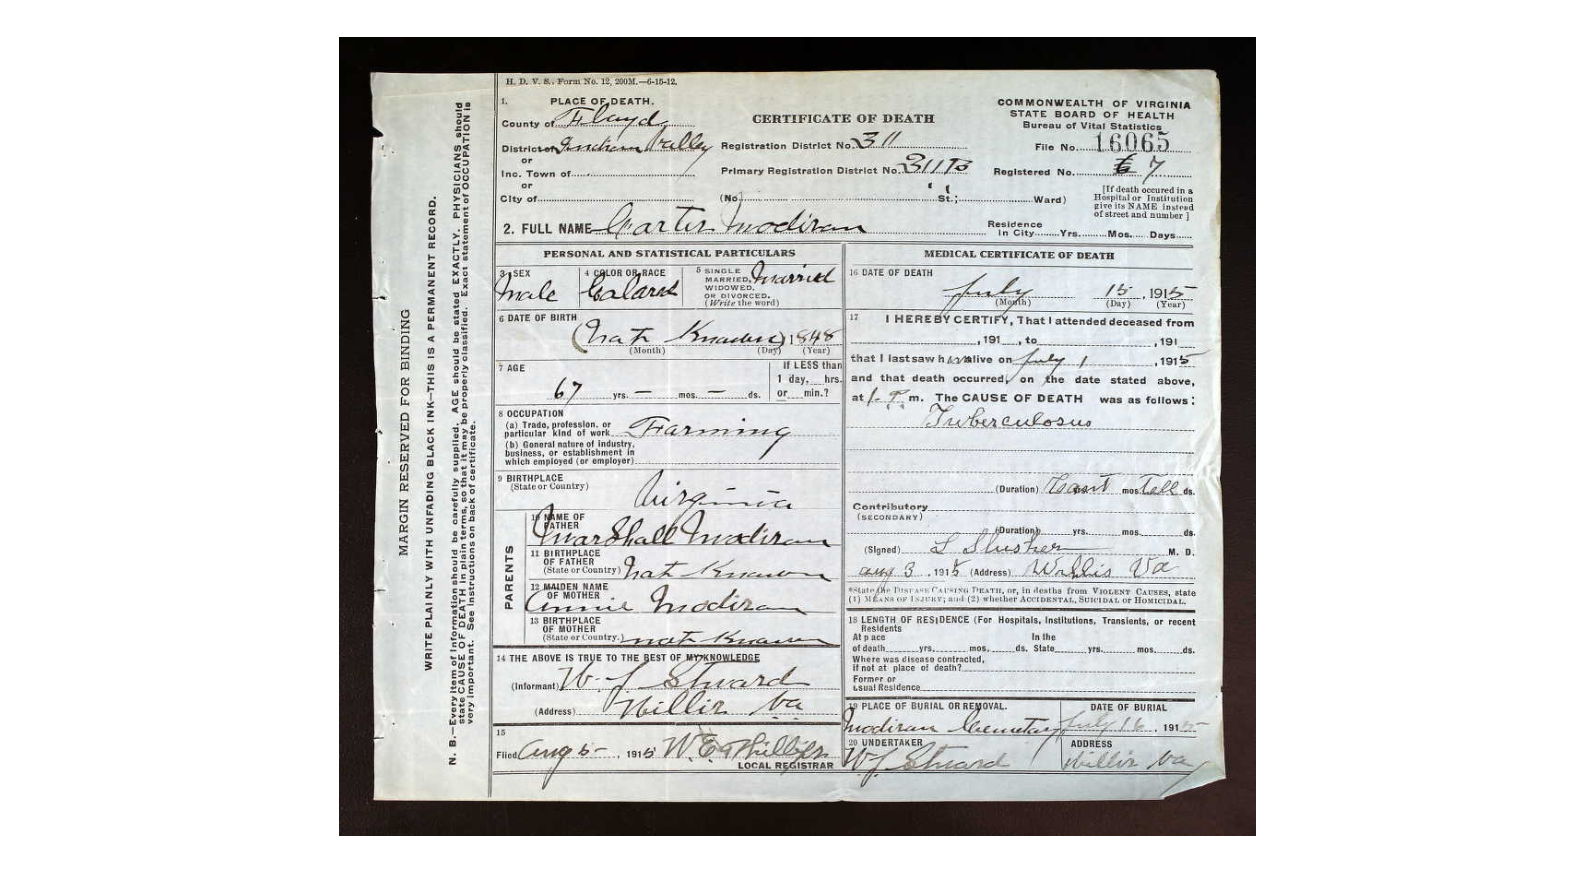 H. D. V. S., Form No. 12, 200M.—6-15-12.
1. PLACE OF DEATH.
County of Floyd
District of Indian Valley
or
Inc. Town of
or
City of
CERTIFICATE OF DEATH
Registration District No. 311
Primary Registration District No. 311B
(No. St.; Ward)
COMMONWEALTH OF VIRGINIA
STATE BOARD OF HEALTH
Bureau of Vital Statistics
File No. 16065
Registered No. 7
[If death occured in a
Hospital or Institution
give its NAME instead
of street and number]
2. FULL NAME Carter Modiran
Residence
In City Yrs. Mos. Days
PERSONAL AND STATISTICAL PARTICULARS
3 SEX
Male
4 COLOR OR RACE
Colared
5 SINGLE
MARRIED,
WIDOWED,
OR DIVORCED.
(Write the word)
Married
6 DATE OF BIRTH
(Nat Knawn) 1848
(Month) (Day) (Year)
7 AGE
67 yrs. — mos. — ds.
If LESS than
1 day, hrs.
or min.?
8 OCCUPATION
(a) Trade, profession, or
particular kind of work Farming
(b) General nature of industry,
business, or establishment in
which employed (or employer)
9 BIRTHPLACE
(State or Country) Virginia
PARENTS
10 NAME OF
FATHER
Marshall Modiran
11 BIRTHPLACE
OF FATHER
(State or Country) Nat Knawn
12 MAIDEN NAME
OF MOTHER
Annie Modiran
13 BIRTHPLACE
OF MOTHER
(State or Country.) nat Knawn
14 THE ABOVE IS TRUE TO THE BEST OF MY KNOWLEDGE
(Informant) W. J. Stuard
(Address) Willis Va
15
Filed Aug 5-, 1915 W. E. Phillips
LOCAL REGISTRAR
MEDICAL CERTIFICATE OF DEATH
16 DATE OF DEATH
July 15, 1915
(Month) (Day) (Year)
17 I HEREBY CERTIFY, That I attended deceased from
, 191 , to , 191
that I last saw h alive on July 1, 1915
and that death occurred, on the date stated above,
at 1 P. m. The CAUSE OF DEATH was as follows:
Tuberculosus
(Duration) Cant mos. Tell ds.
Contributory
(SECONDARY)
(Duration) yrs. mos. ds.
(Signed) L Slusher M. D.
Aug 3, 1915 (Address) Willis Va
*State the DISEASE CAUSING DEATH, or, in deaths from VIOLENT CAUSES, state
(1) MEANS OF INJURY; and (2) whether ACCIDENTAL, SUICIDAL or HOMICIDAL.
18 LENGTH OF RESIDENCE (For Hospitals, Institutions, Transients, or recent
Residents
At place In the
of death yrs. mos. ds. State yrs. mos. ds.
Where was disease contracted,
if not at place of death?
Former or
usual Residence
19 PLACE OF BURIAL OR REMOVAL.
Modiran Cemetary
DATE OF BURIAL
July 16, 1915
20 UNDERTAKER
W J Stuard
ADDRESS
Willis Va
MARGIN RESERVED FOR BINDING
WRITE PLAINLY WITH UNFADING BLACK INK—THIS IS A PERMANENT RECORD.
N. B.—Every item of information should be carefully supplied. AGE should be stated EXACTLY. PHYSICIANS should
state CAUSE OF DEATH in plain terms, so that it may be properly classified. Exact statement of OCCUPATION is
very important. See instructions on back of certificate.